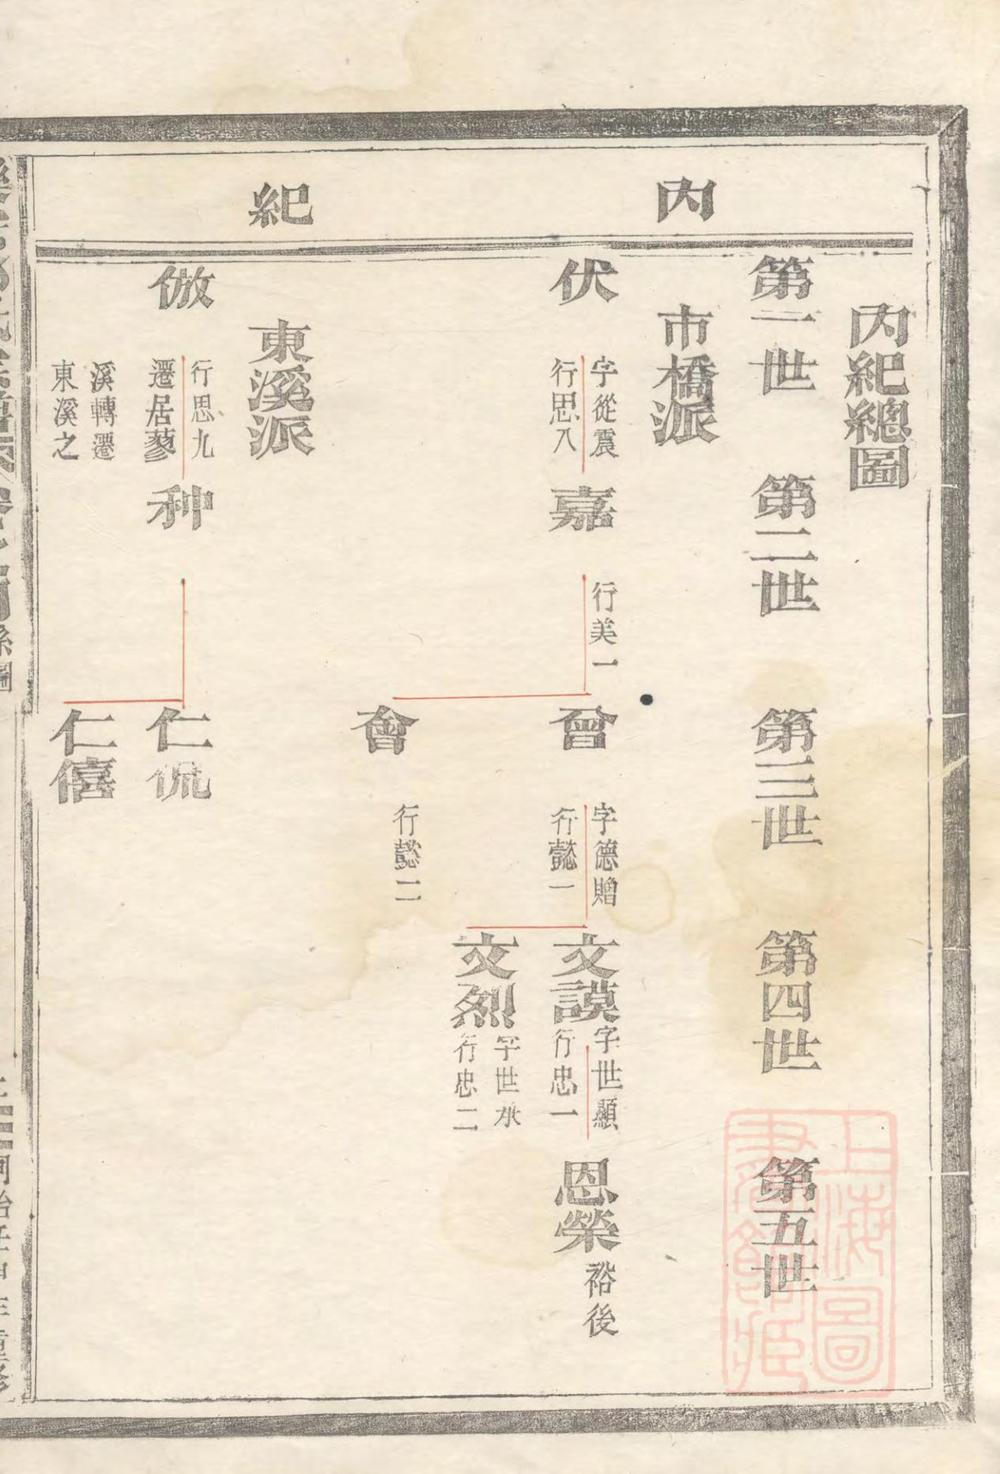 內紀
內紀總圖
第一世 第二世 第三世 第四世 第五世
市橋派
伏
字從震
行思八
嘉
行美一
曾
字德贈
行懿一
文謨
字世顯
行忠一
恩榮
裕後
文烈
字世承
行忠二
會
行懿二
東溪派
倣
行思九
遷居蓼
溪轉遷
東溪之
种
仁侃
仁僖
系圖
同治壬申年重修
上海圖
書館藏